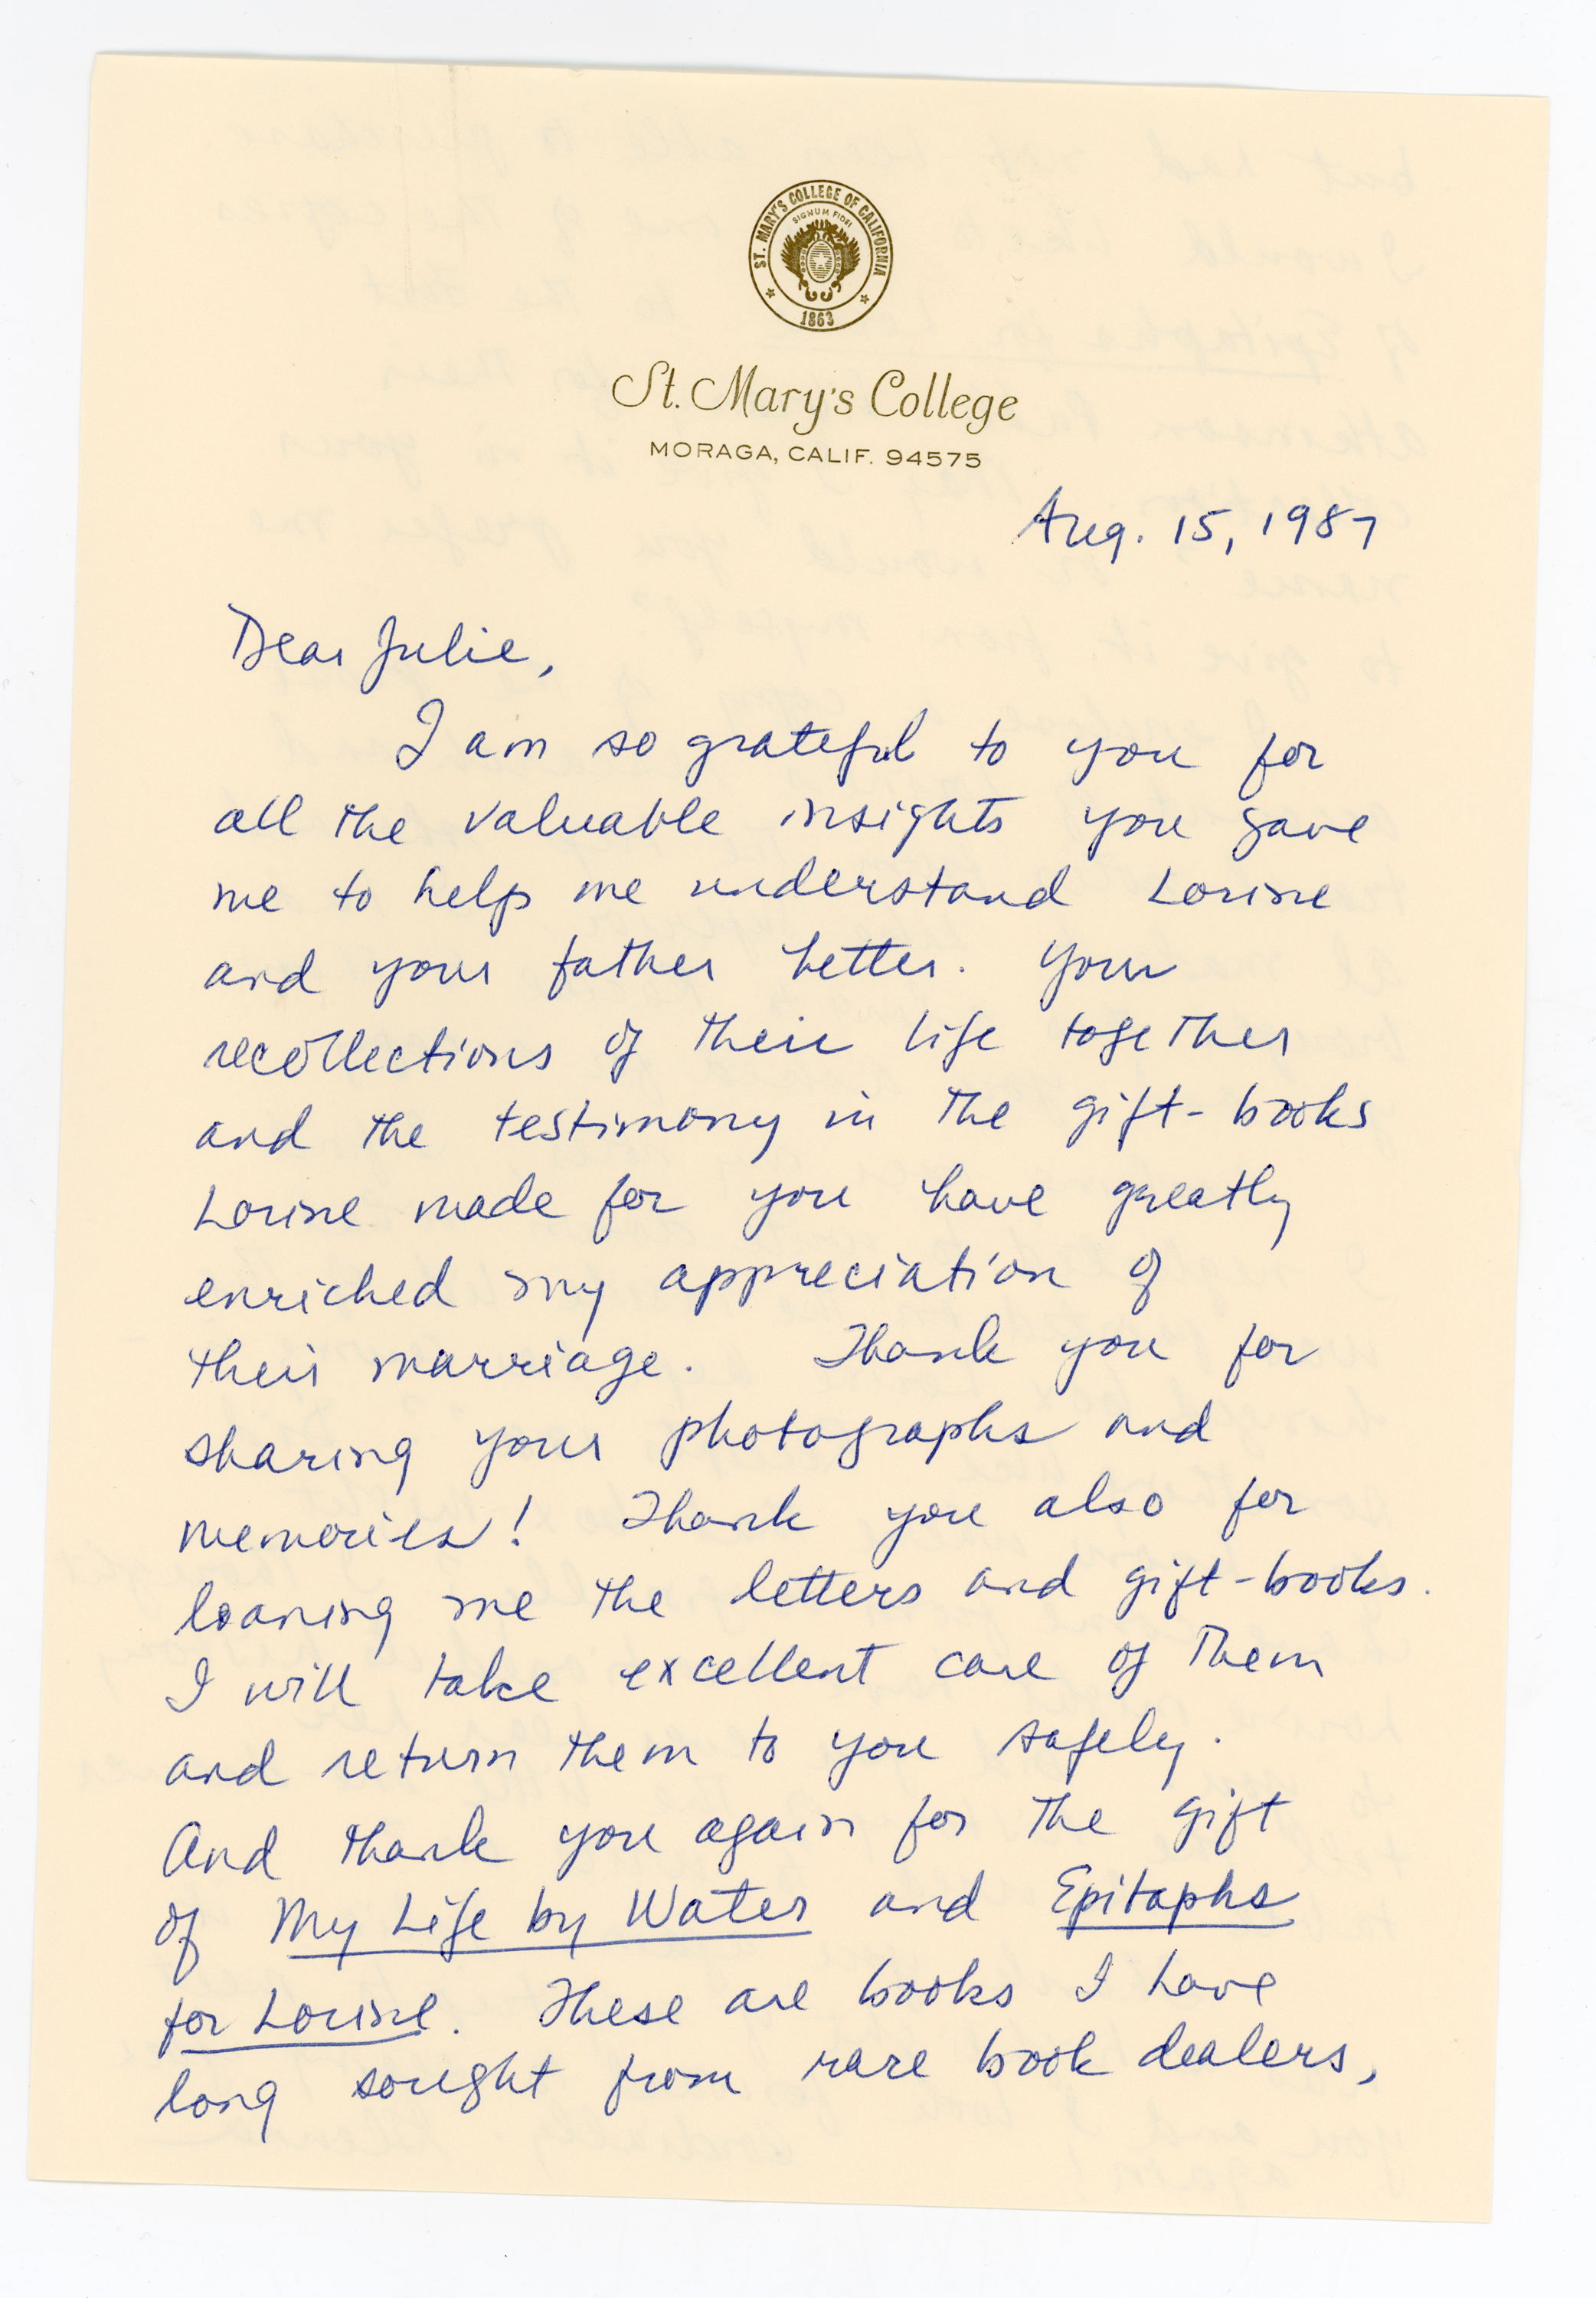 ST. MARY'S COLLEGE OF CALIFORNIA
SIGNUM FIDEI
1863
St. Mary's College
MORAGA, CALIF. 94575
Aug. 15, 1987
Dear Julie,
I am so grateful to you for
all the valuable insights you gave
me to help me understand Lorine
and your father better. Your
recollections of their life together
and the testimony in the gift-books
Lorine made for you have greatly
enriched my appreciation of
their marriage. Thank you for
sharing your photographs and
memories! Thank you also for
loaning me the letters and gift-books.
I will take excellent care of them
and return them to you safely.
And thank you again for the gift
of My Life by Water and Epitaphs
for Lorine. These are books I have
long sought from rare book dealers,